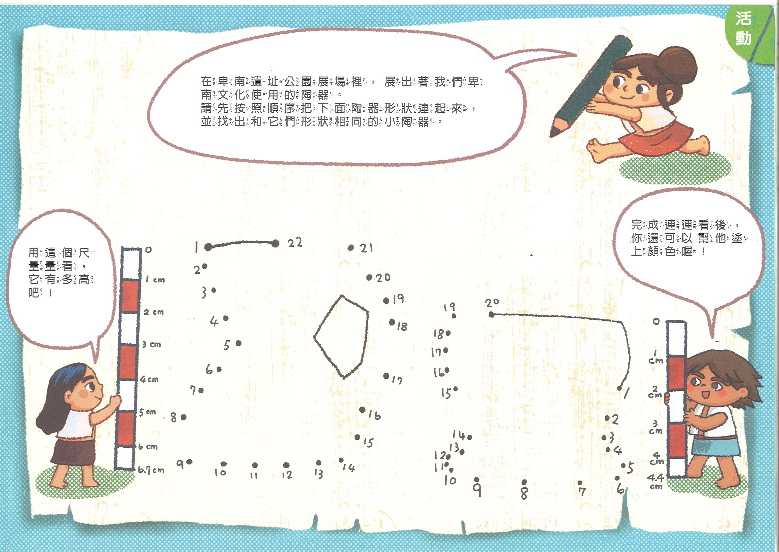 活
動
在卑南遺址公園展場裡，展出著我們卑
南文化使用的陶器。
請先按照順序把下面陶器形狀連起來，
並找出和它們形狀相同的小陶器。
用這個尺
量量看，
它有多高
吧！
完成連連看後，
你還可以幫他塗
上顏色喔！
0
1 cm
2 cm
3 cm
4 cm
5 cm
6 cm
6.7 cm
1
22
2
3
4
5
6
7
8
9
10
11
12
13
14
15
16
17
18
19
20
21
19
20
18
17
16
15
14
13
12
11
10
9
8
7
6
5
4
3
2
1
0
1
cm
2
cm
3
cm
4
cm
4.4
cm